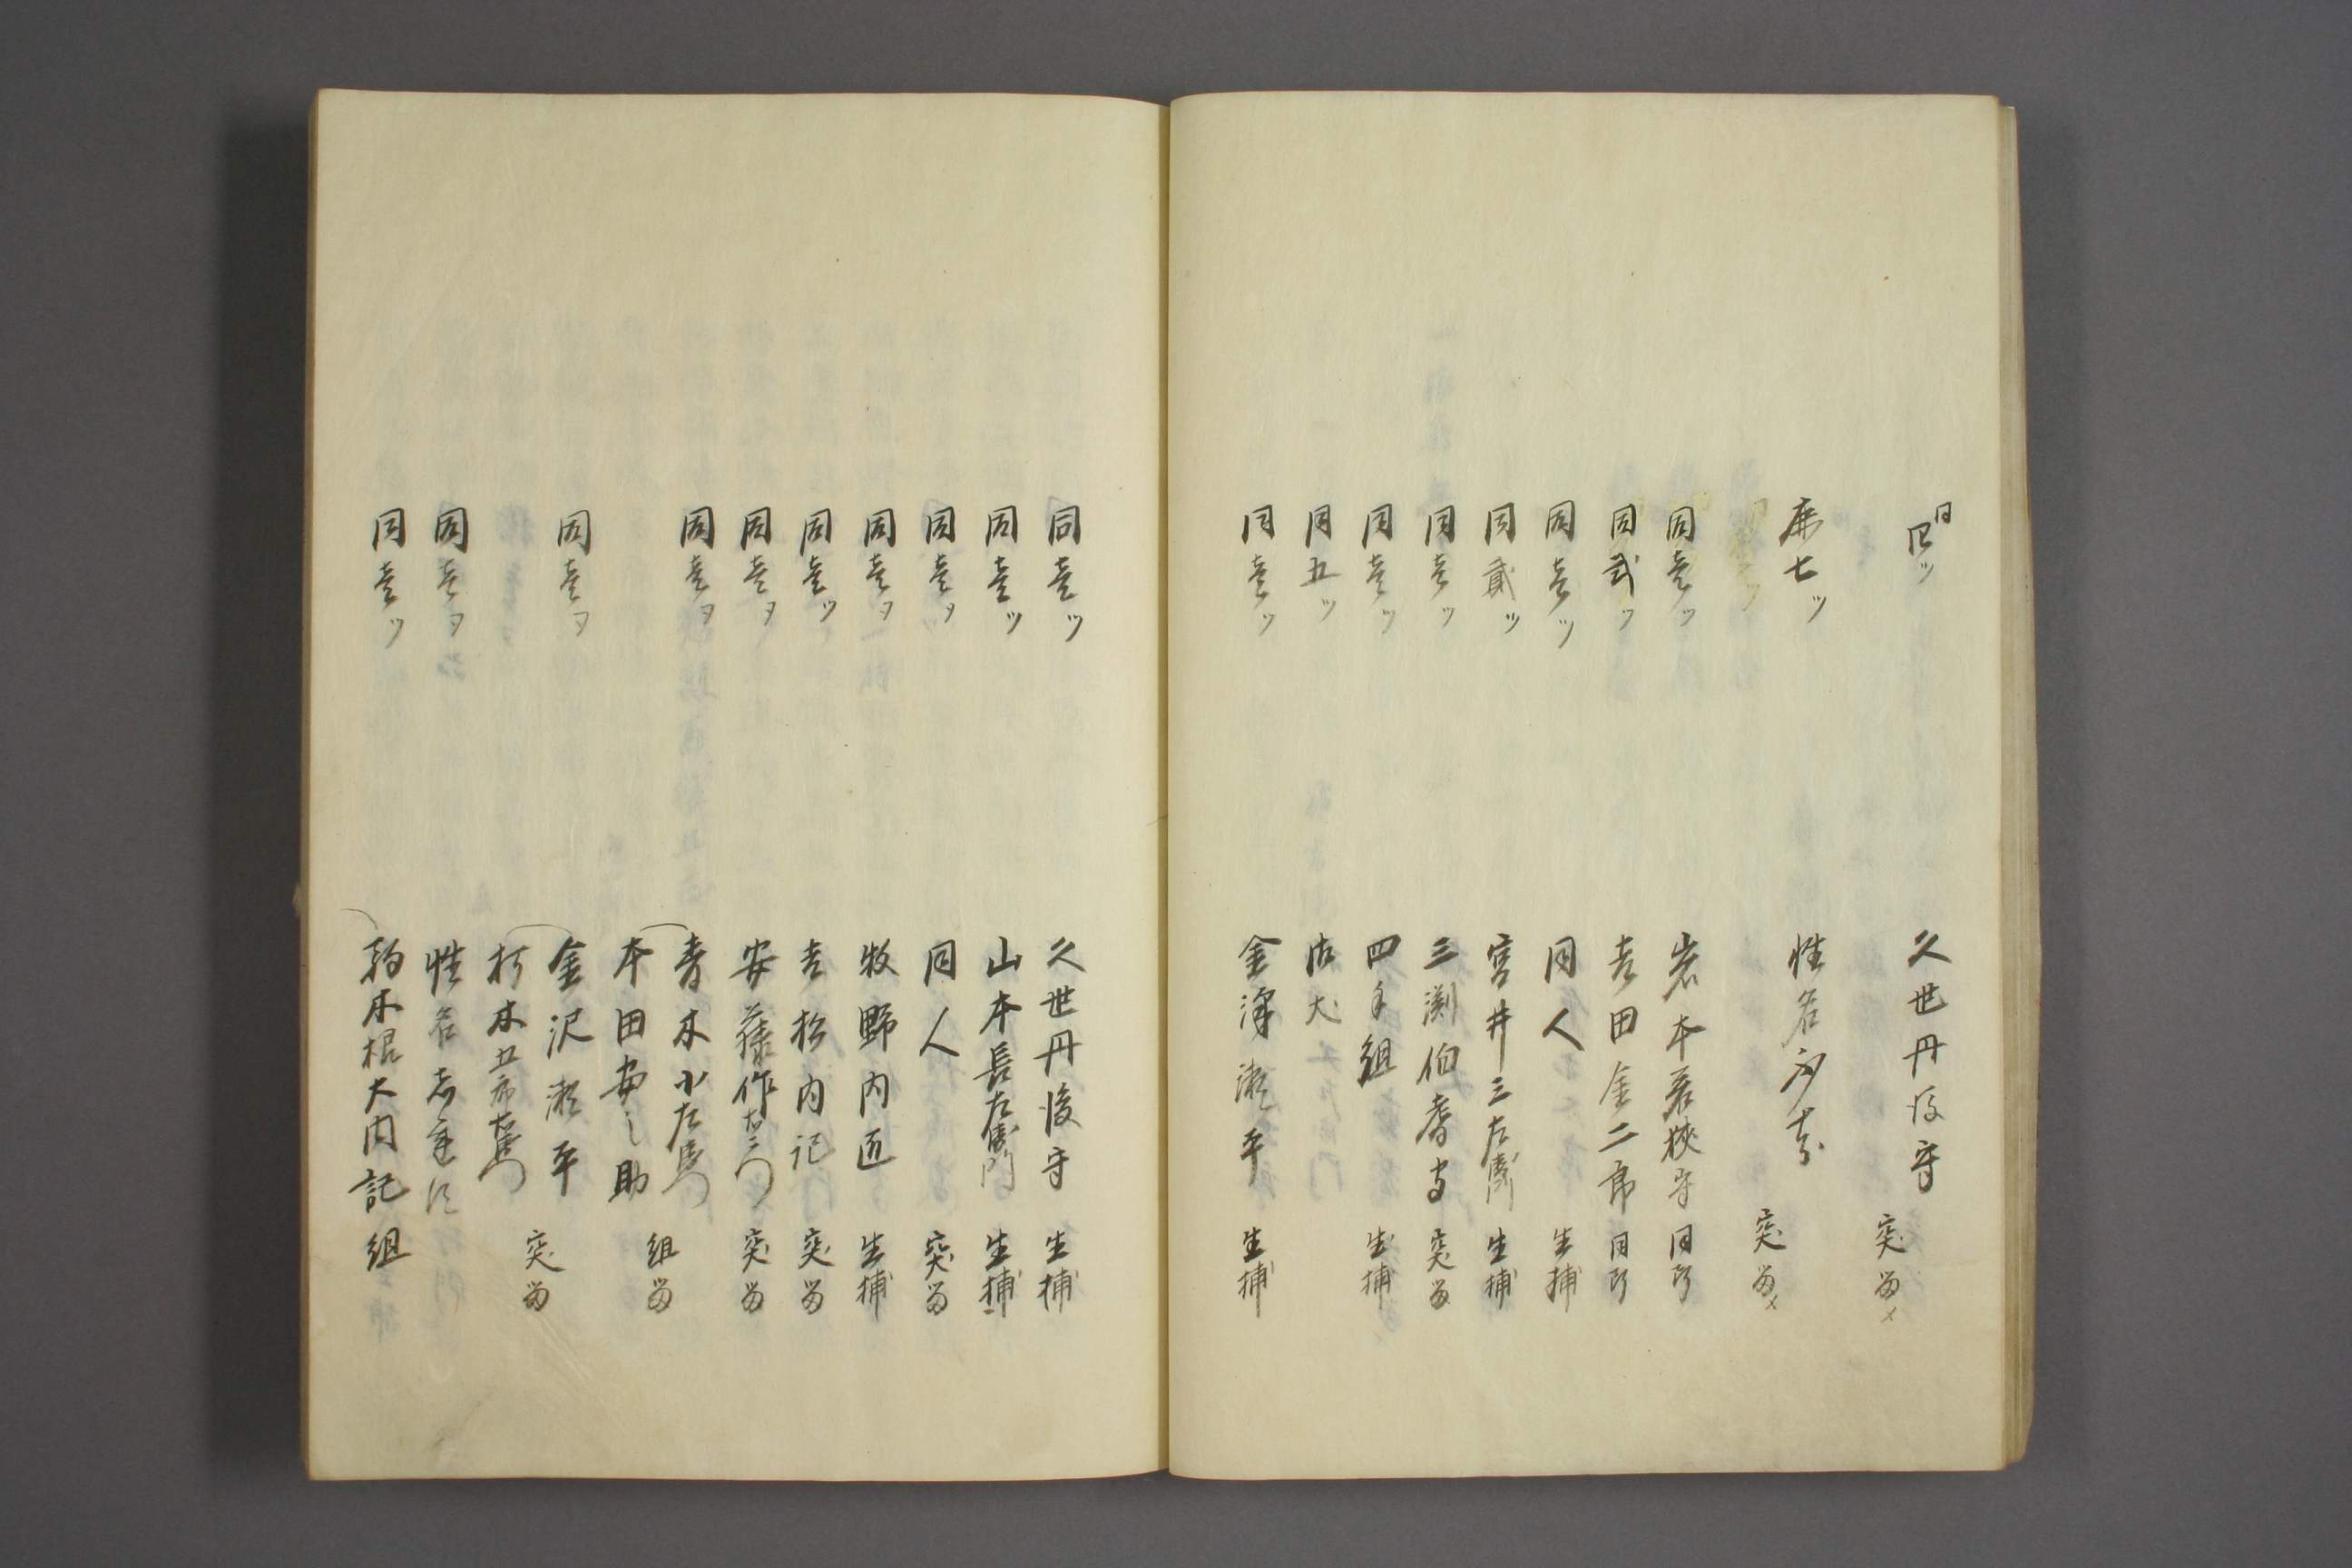 同 四ッ 久世丹後守 突留
鹿七ッ 性名
突留
同壱ッ 岩本若狭守 同断
同弐ッ 吉田金二郎 同断
同壱ッ 同人 生捕
同貳ッ 宮井三左衛門 生捕
同壱ッ 三渕伯耆守 突留
同壱ッ 四手組 生捕
同五ッ 御犬
同壱ッ 金澤瀬平 生捕
同壱ッ 久世丹後守 生捕
同壱ッ 山本長左衛門 生捕
同壱ッ 同人 突留
同壱ッ 牧野内匠 生捕
同壱ッ 吉松内記 突留
同壱ッ 安藤作右衛門 突留
同壱ッ 青木小左衛門
本田安之助 組留
同壱ッ 金沢瀬平
朽木五郎左衛門 突留
同壱ッ 性名
同壱ッ 大内記組